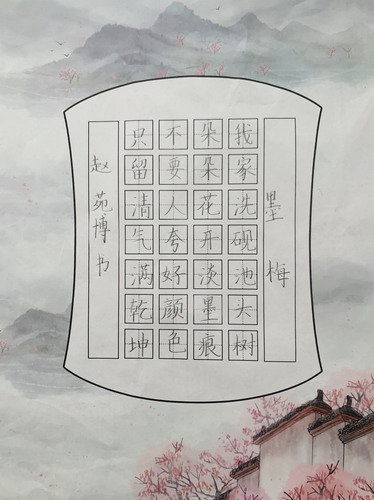 墨梅
我家洗砚池头树
朵朵花开淡墨痕
不要人夸好颜色
只留清气满乾坤
赵苑博书